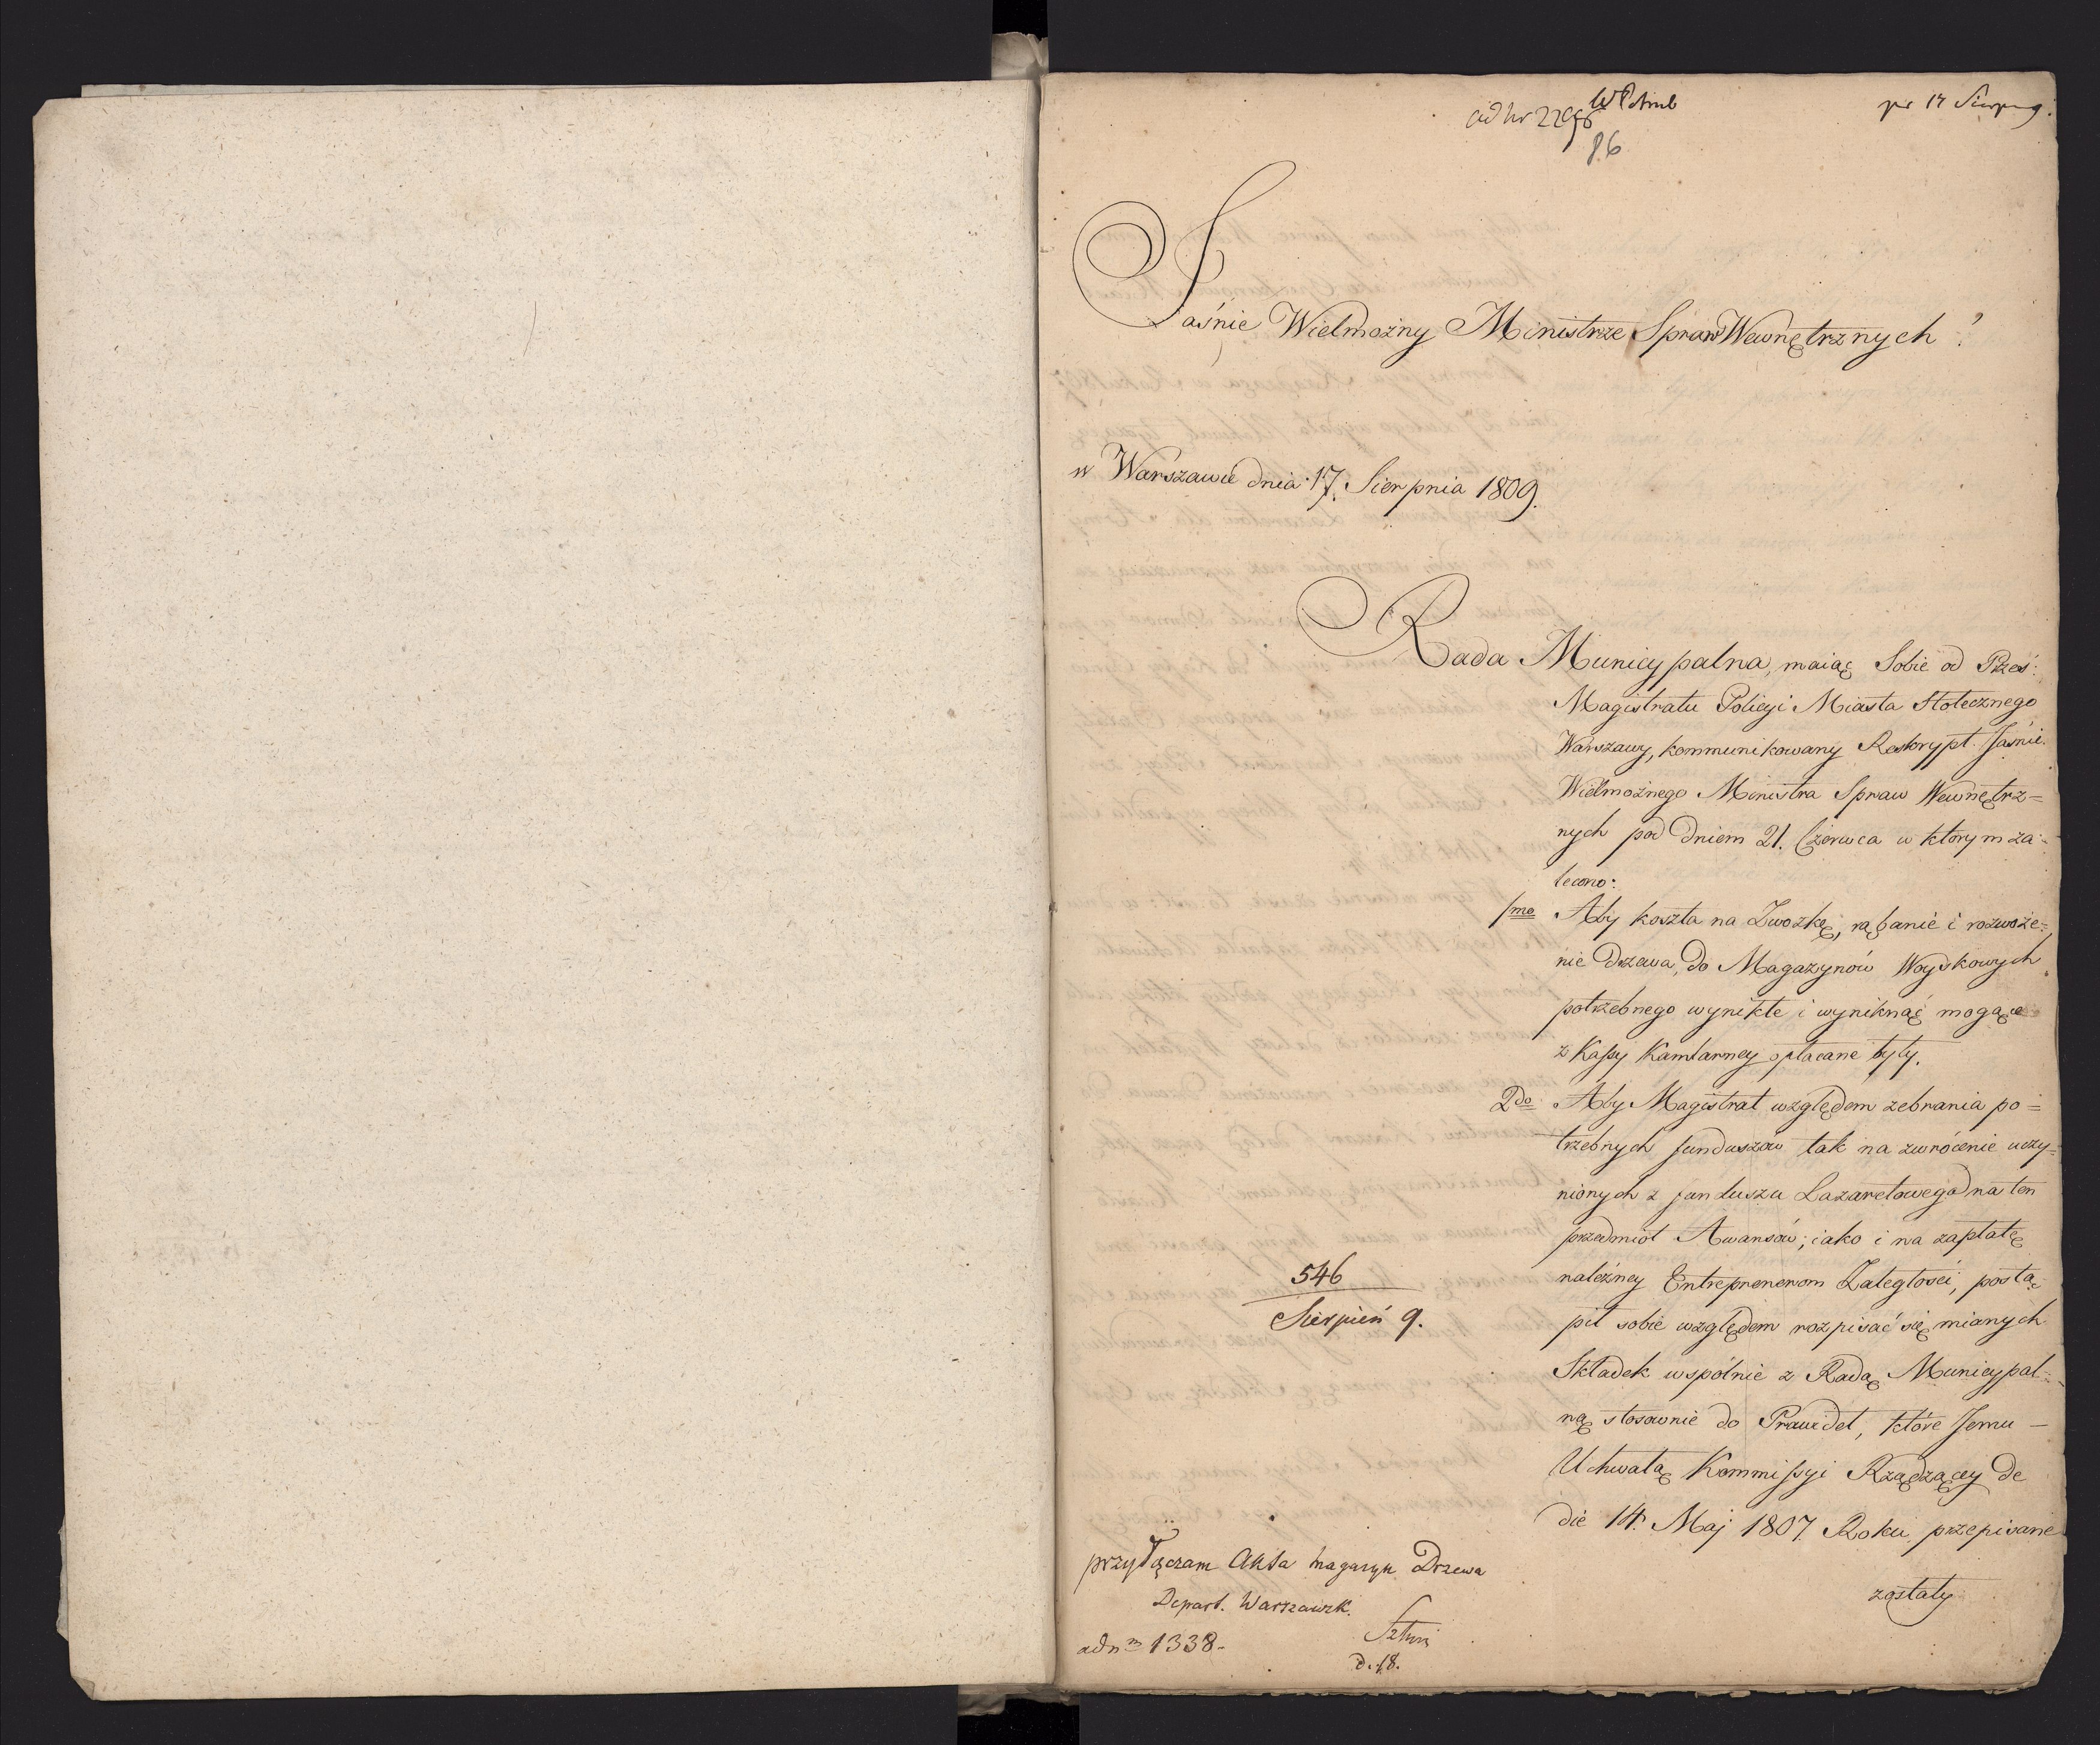 ad Nr 2296
86
pr 17 Sierp 9.
Jaśnie Wielmożny Ministrze Spraw Wewnętrznych!
w Warszawie dnia 17. Sierpnia 1809.
Rada Municypalna, maiąc Sobie od Prześ:
Magistratu Policyi Miasta Stołecznego
Warszawy, kommunikowany Reskrypt Jaśnie
Wielmożnego Ministra Spraw Wewnętrz=
nych pod dniem 21. Czerwca w którym za=
lecono:
1mo Aby koszta na Zwozkę, rąbanie i rozwoże=
nie drzewa, do Magazynów Woyskowych
potrzebnego wynikłe i wyniknąć mogące
z Kassy Kamlarney opłacane były.
2do Aby Magistrat względem zebrania po=
trzebnych funduszów tak na zwrócenie uczy=
nionych z funduszu Lazaretowego na ten
przedmiot Awansów; iako i na zapłatę
należney Entreprenerom Zaległości, postą=
pił sobie względem rozpisać się mianych
Składek wspólnie z Radą Municypal=
ną stosownie do Prawideł, które Jemu
Uchwałą Kommissyi Rządzącey de
die 14. Maj 1807 Roku przepisane
zostały
546
Sierpień 9.
przyłączam Akta magazyn Drzewa
Depart. Warszawsk.
ad nm 1338.
d. 18.